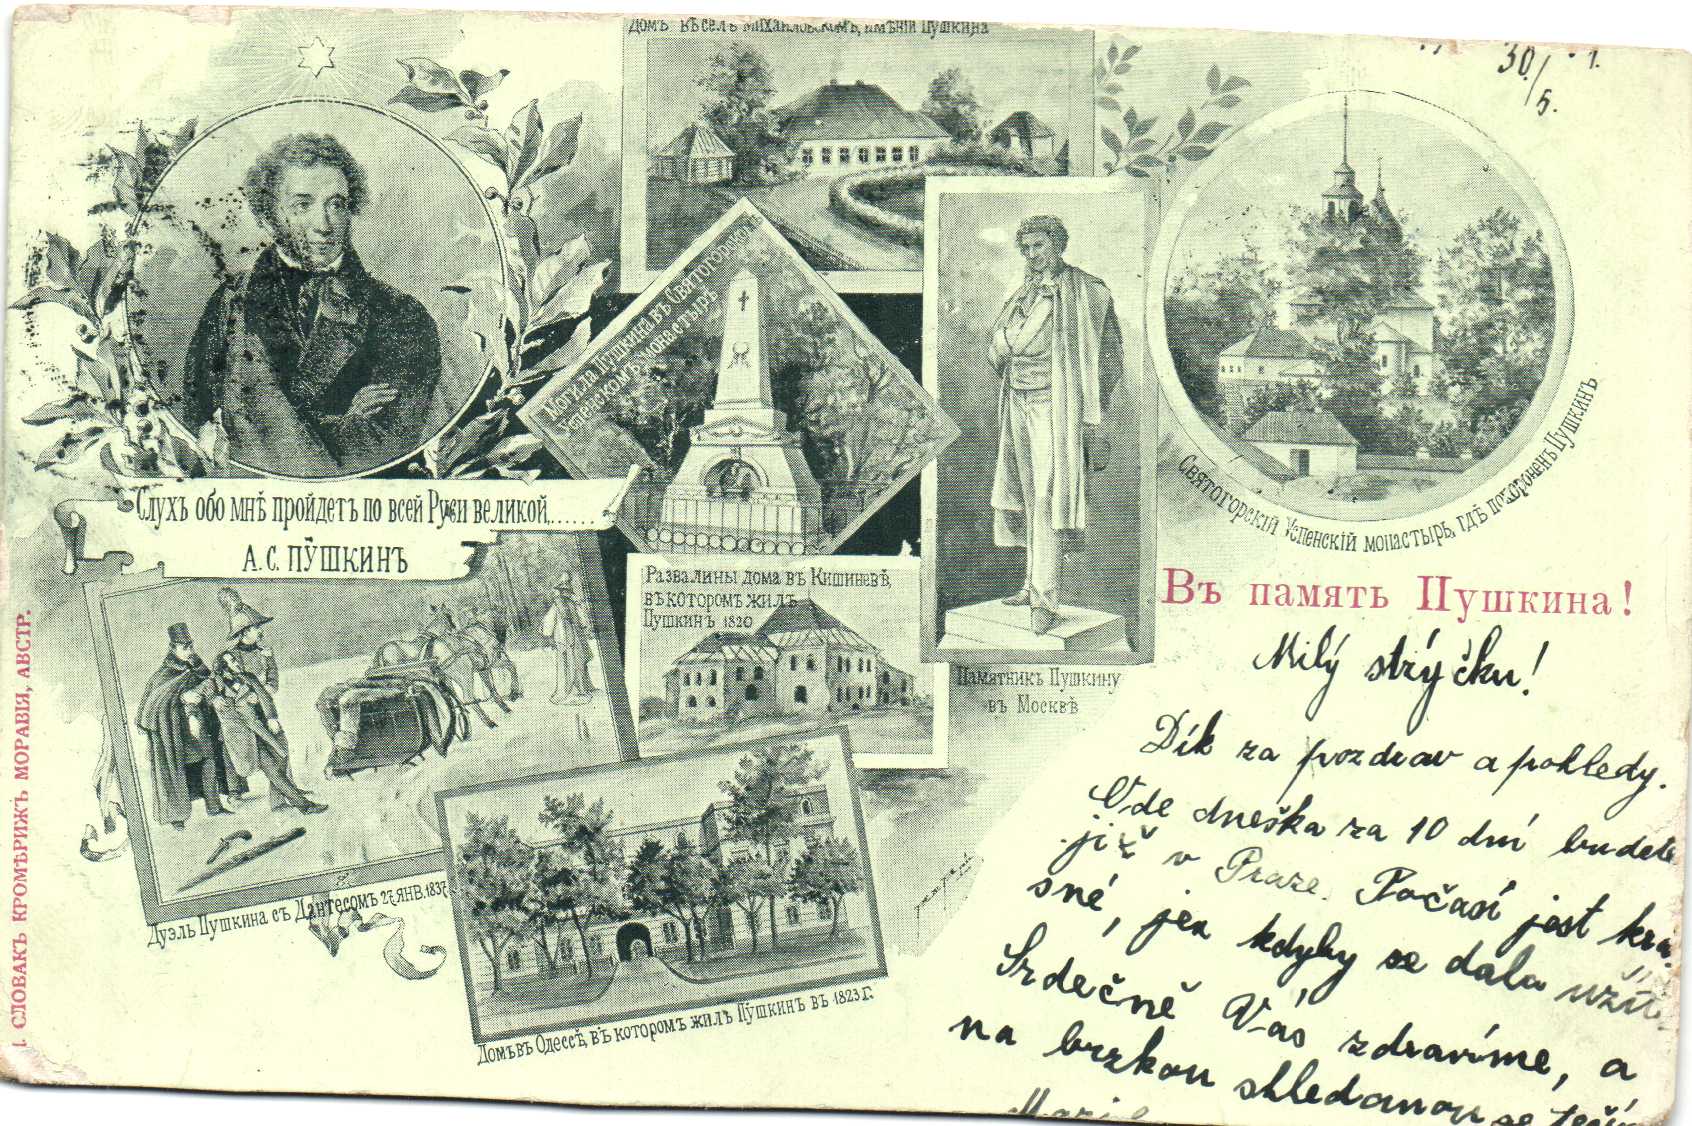 Домъ въ селѣ Михайловскомъ, имѣніи Пушкина
30/5. 1.
Могила Пушкина въ Святогорскомъ
Успенскомъ монастырѣ
Святогорскій Успенскій монастырь, гдѣ похороненъ Пушкинъ
Слухъ обо мнѣ пройдетъ по всей Руси великой,......
А.С. ПУШКИНЪ
Развалины дома въ Кишиневѣ,
въ которомъ жилъ
Пушкинъ 1820
Памятникъ Пушкину
въ Москвѣ
Дуэль Пушкина съ Дантесомъ 27 ЯНВ. 1837
Домъ въ Одессѣ, въ которомъ жилъ Пушкинъ въ 1823 г.
СЛОВАКЪ КРОМѢРИЖЪ МОРАВІЯ, АВСТР.
Въ память Пушкина!
Milý strýčku!
Dík za pozdrav a pohledy.
Ode dneška za 10 dní budete
již v Praze. Počasí jest krá
sné, jen kdyby se dalo užíti.
Srdečně Vás zdravíme, a
na brzkou shledanou se těší
Marie